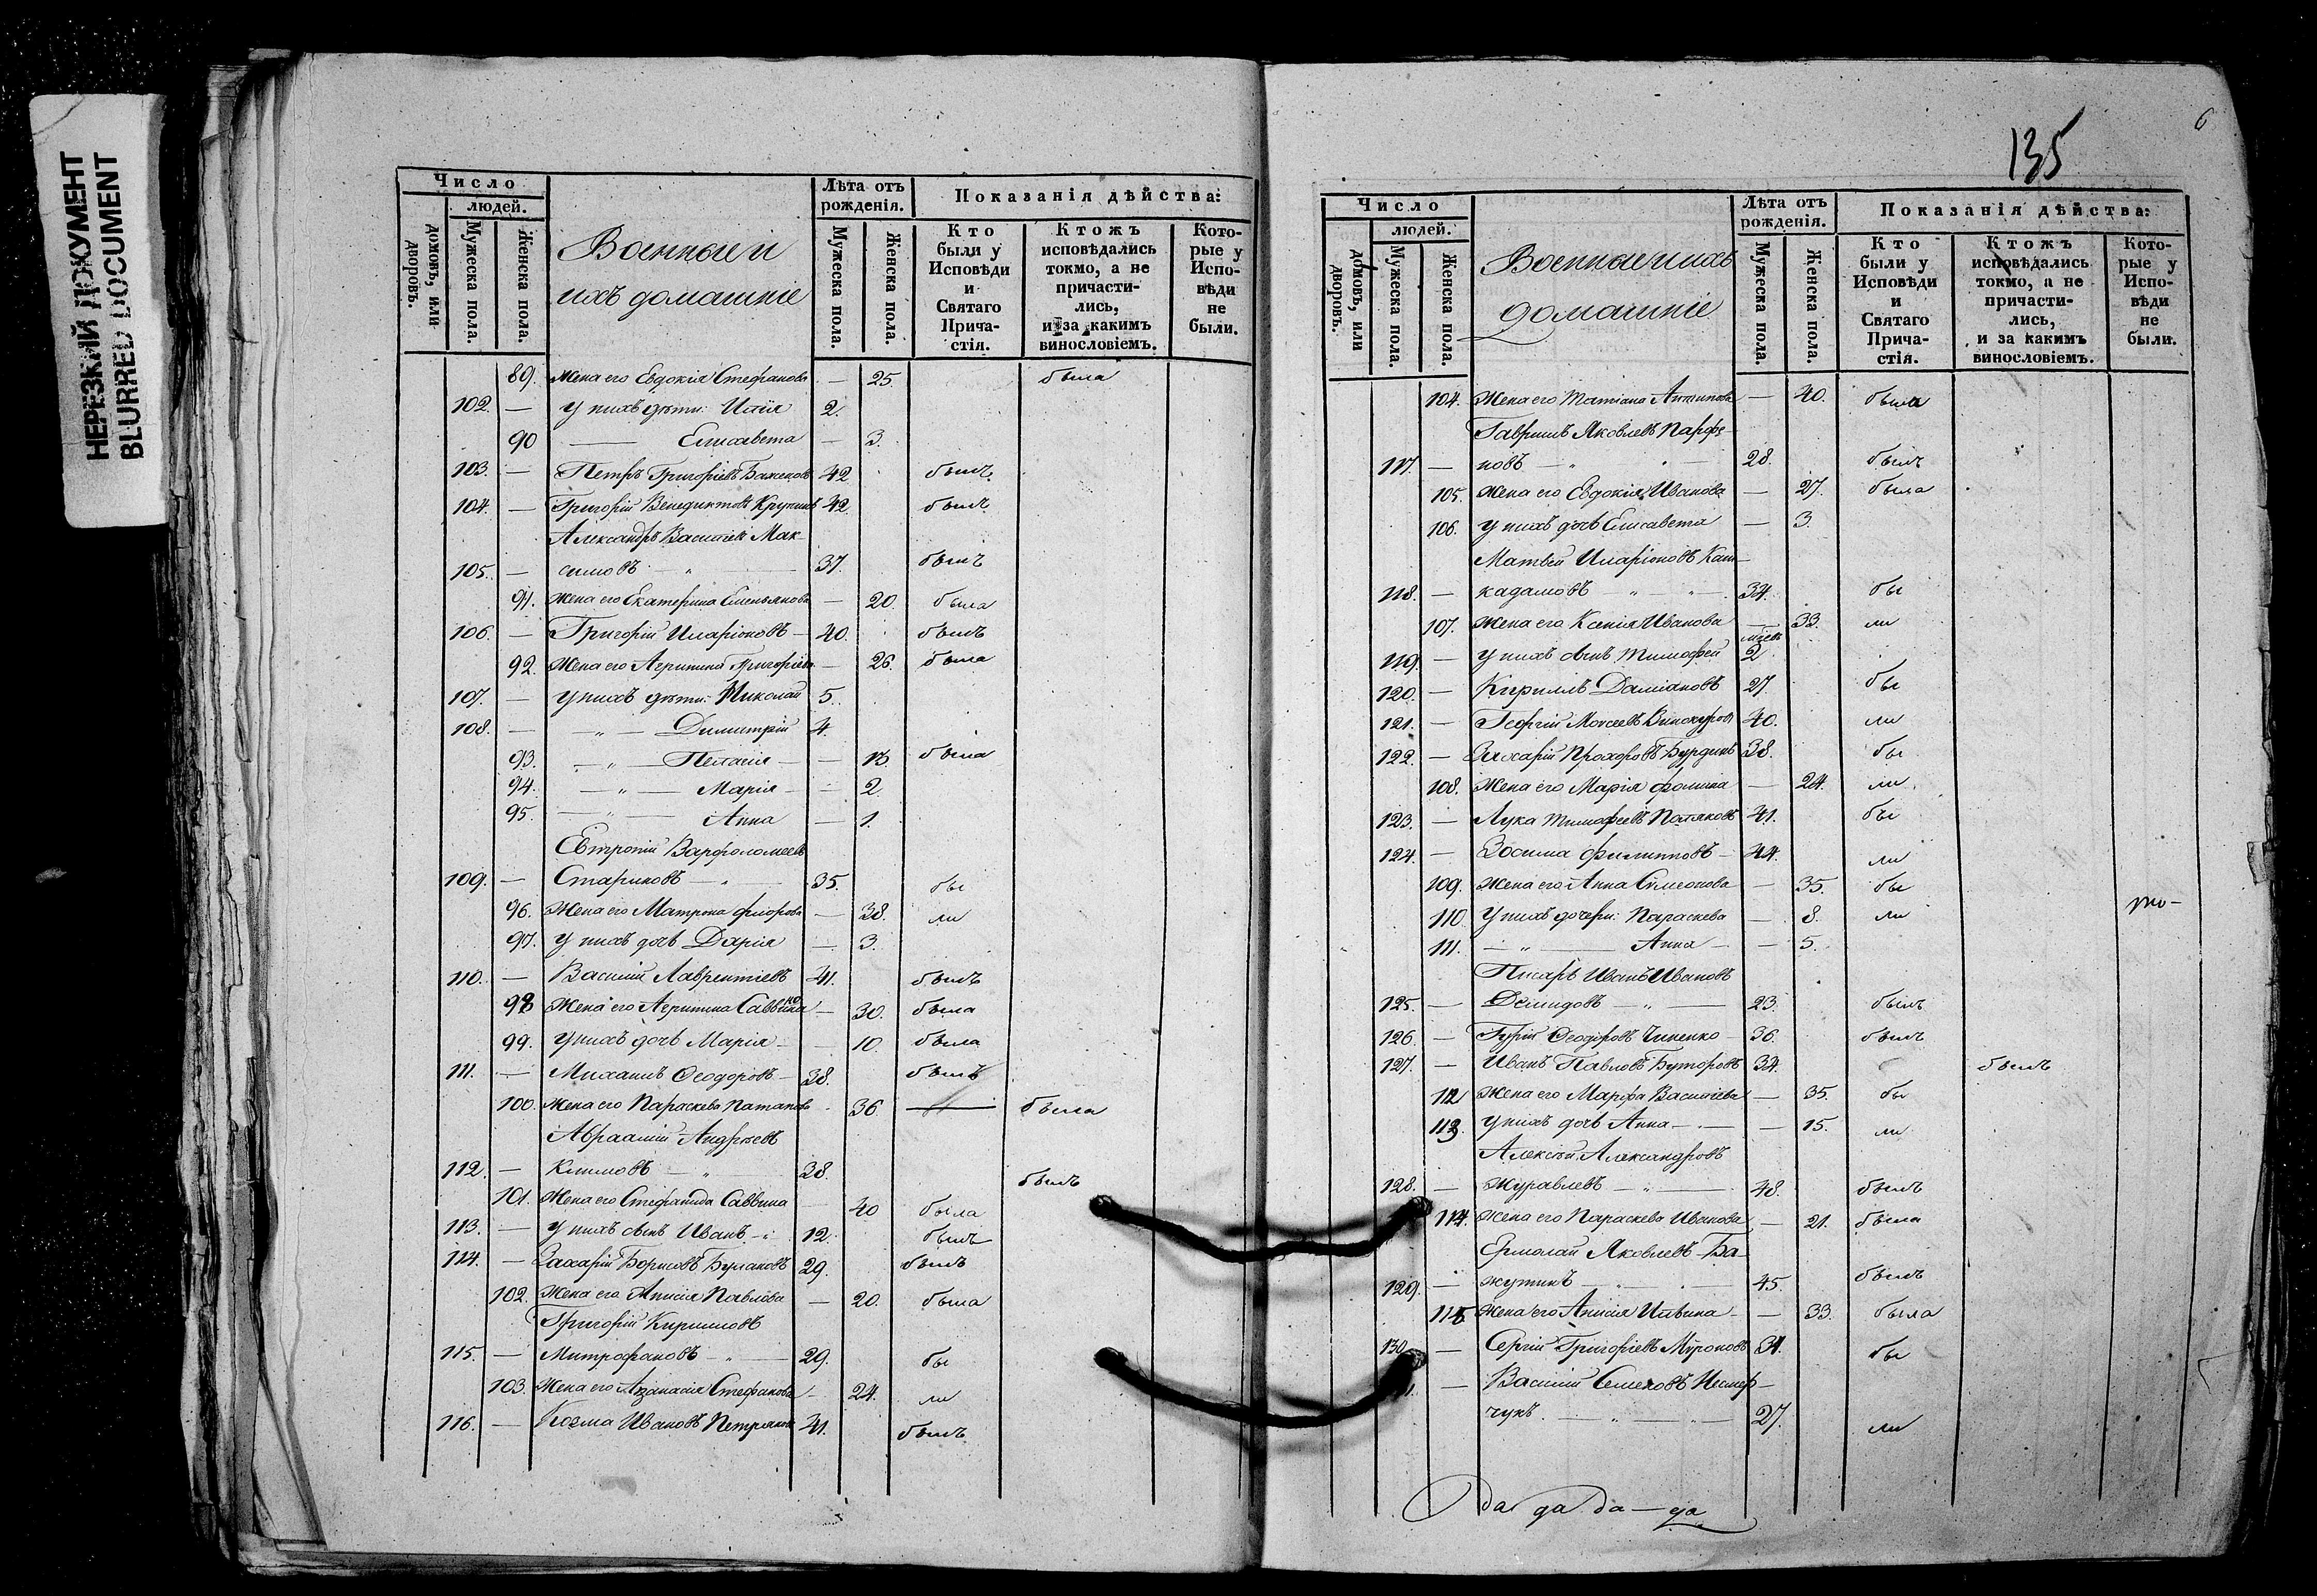 НЕРЕЗКИЙ ДОКУМЕНТ
BLURRED DOCUMENT
Число
людей.
домовъ, или дворовъ.
Мужеска пола.
Женска пола.
Военные и
ихъ домашніе
Лѣта отъ рожденія.
Мужеска пола.
Женска пола.
Показанія дѣйства:
Кто были у Исповѣди и Святаго Прича-стія.
Ктожъ исповѣдались токмо, а не причасти-лись, и за какимъ винословіемъ.
Кото-рые у Испо-вѣди не были.
89. Жена его Евдокія Стефанова — 25. была
102. — У нихъ дѣти: Илія 2.
90 — Елисавета — 3.
103. — Петръ Григорьевъ Баженовъ 42 былъ
104. — Григорій Венедиктовъ Крупинъ 42 былъ
Александръ Васильевъ Мак-
105. — симовъ — 37. былъ
91. Жена его Екатерина Емельянова — 20. была
106. — Григорій Иларіоновъ — 40. былъ
92. Жена его Агрипина Григорьева — 26. была
107. — У нихъ дѣти: Николай 5.
108. — — „ — Димитрій 4.
93. — „ — Пелагія — — 13 была
94. — „ — Марія — — 2
95. — „ — Анна — 1.
Евтропій Варфоломеевъ
109. — Стариковъ — „ — 35. бы
96. Жена его Матрона Флорова — 38. ли
97. У нихъ дочь Дарія — 3.
110. — Василій Лаврентіевъ 41. былъ
98 Жена его Агрипина — 30. была
99. У нихъ дочь Марія — 10. была
111. — Михаилъ Ѳеодоровъ — 38. былъ
100. Жена его Параскева Патапова — 36 — была
Авраамій Андреевъ
112. — Климовъ — „ 38. былъ
101. Жена его Стефанида Саввина — 40 была
113. — У нихъ сынъ Иванъ 12. былъ
114. — Захарій Борисовъ Булановъ 29. былъ
102. Жена его Анисія Павлова — 20. была
Григорій Кириловъ
115. — Митрофановъ — „ — 29. бы
103. Жена его Аѳанасія Стефанова — 24. ли
116. — Козма Ивановъ 41. былъ
135
6
Число
людей.
домовъ, или дворовъ.
Мужеска пола.
Женска пола.
Военные и ихъ
домашніе
Лѣта отъ рожденія.
Мужеска пола.
Женска пола.
Показанія дѣйства:
Кто были у Исповѣди и Святаго Прича-стія.
Ктожъ исповѣдались токмо, а не причасти-лись, и за какимъ винословіемъ.
Кото-рые у Испо-вѣди не были.
104. Жена его Татіана Антипова — 40. была
Гавриилъ Яковлевъ Парфе-
117. — новъ — „ — 28. былъ
105. Жена его Евдокія Иванова — 27. была
106. У нихъ дочь Елисавета — 3.
Матвей Иларіоновъ
118. — кадамовъ — „ — „ — 34. бы
107. Жена его Ксенія Иванова — 33. ли
119. — У нихъ сынъ Тимофей 2
120. — Кириллъ Даміановъ 27. бы
121. — Георгій Моисеевъ Винокуровъ 40. ли
122. — Захарій Прохоровъ Бурдинъ 38. бы
108. Жена его Марія Фомина — 24. ли
123. — Лука Тимофеевъ Поляковъ 41. бы
124. — Зосима Филипповъ — 44. ли
109. Жена его Анна Симеонова — 35. бы
110. У нихъ дочери: Параскева — 8. ли
111. — „ — Анна — — 5.
Писарь Иванъ Ивановъ
125. — Демидовъ — „ — 23. былъ
126. — Гурій Ѳеодоровъ Чиненко — 36. былъ
127. — Иванъ Павловъ Буторовъ 34. былъ
112 Жена его Марфа Васильева — 35. бы
113. У нихъ дочь Анна — — 15. ли
Алексѣй Александровъ
128. — Журавлевъ — „ — 48. былъ
114. Жена его Параскева Иванова — 21. была
Ермолай Яковлевъ Ба-
129. — жутинъ — 45. былъ
115 Жена его Анисія Ильина — — 33. была
130. — Сергій Григорьевъ Мироновъ 31. бы
— Василій Семеновъ
чукъ. — „ — „ — 27. ли